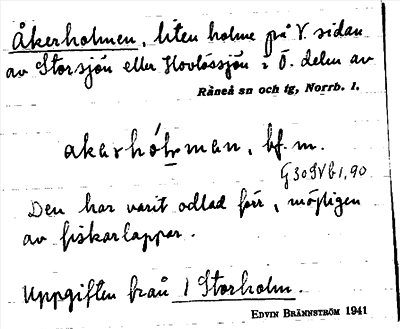 Åkerholmen, liten holme på V. sidan
av Storsjön eller Hovlössjön i Ö. delen av
Råneå sn och tg, Norrb. l.
akarhólman, bf. m.
Den har varit odlad förr, möjligen
av fiskarlappar.
Uppgiften från 1 Storholm.
EDVIN BRÄNNSTRÖM 1941